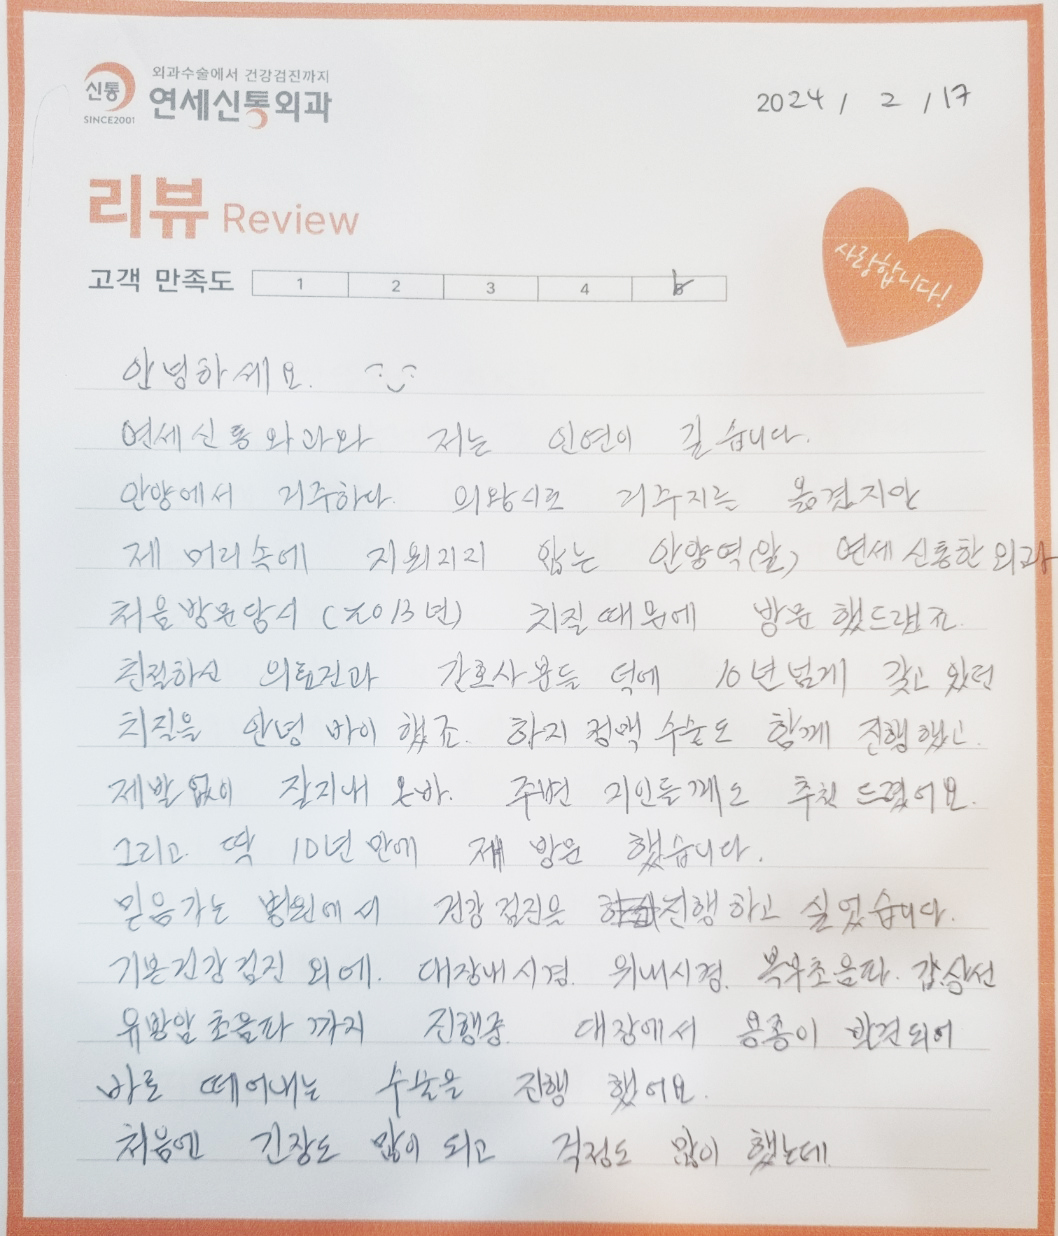 외과수술에서 건강검진까지
신통 연세신통외과
SINCE2001
2024 / 2 / 17
리뷰 Review
사랑합니다!
고객 만족도 1 2 3 4 5
안녕하세요.
연세신통외과와 저는 인연이 깊습니다.
안양에서 거주하다 의왕시로 거주지는 옮겼지만
제 머리속에 지워지지 않는 안양역(앞) 연세신통한외과
처음 방문당시 (2013년) 치질때문에 방문 했드랬죠.
친절하신 의료진과 간호사분들 덕에 10년넘게 갖고 있던
치질을 안녕 바이 했죠. 하지정맥 수술도 함께 진행했고.
재발없이 잘지내 온바. 주변 지인들께도 추천 드렸어요.
그리고 딱 10년 만에 재 방문 했습니다.
믿음가는 병원에서 건강검진을 진행하고 싶었습니다.
기본건강검진 외에. 대장내시경. 위내시경. 복부초음파. 갑상선
유방암초음파 까지 진행중. 대장에서 용종이 발견되어
바로 떼어내는 수술을 진행 했어요.
처음엔 긴장도 많이 되고 걱정도 많이 했는데.